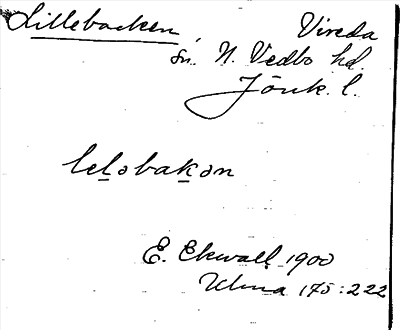 Lillebacken, Vireda
sn. N. Vedbo hd.
Jönk. l.
lelobakon
E. Ekwall 1900
Ulma 175:222